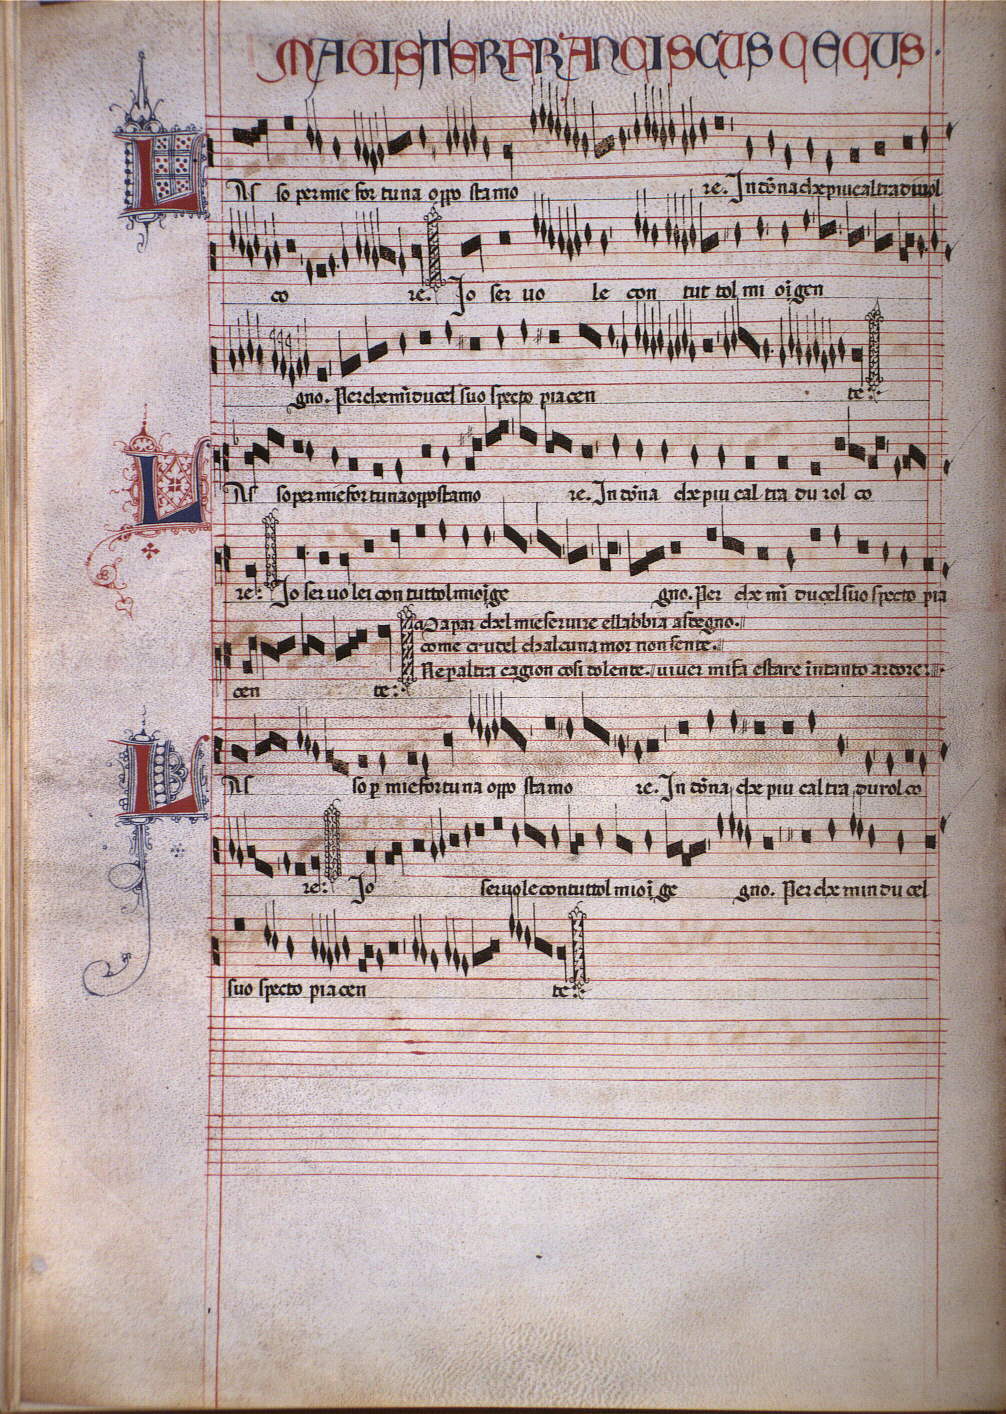 MAGISTER FRANCISCUS CECUS.
LAs so per mie for tu na oppo sta mo re. In dōna che piu cal tra du uol
co re. Io ser uo le con tut tol mi oīgen
gno. Perche mīducel suo specto piacen te:
LAs so per mie fortuna oppo stamo re. In dōna che piu cal tra du rol co
re: Io ser uo lei con tuttol mioīge gno. Per che mī ducel suo specto pia
Da par chel mie seruire ellabbia asdegno.
come crudel chalcuna mor non sente.
cen te: Ne per altra cagion cosi dolente. uiuer mi fa e stare in tanto ardore:
LAs so p̄ mie fortu na oppo sta mo re. In dōna che piu cal tra du rol co
re: Io seruo le con tuttol mi oī ge gno. Per che min du cel
suo specto pia cen te: